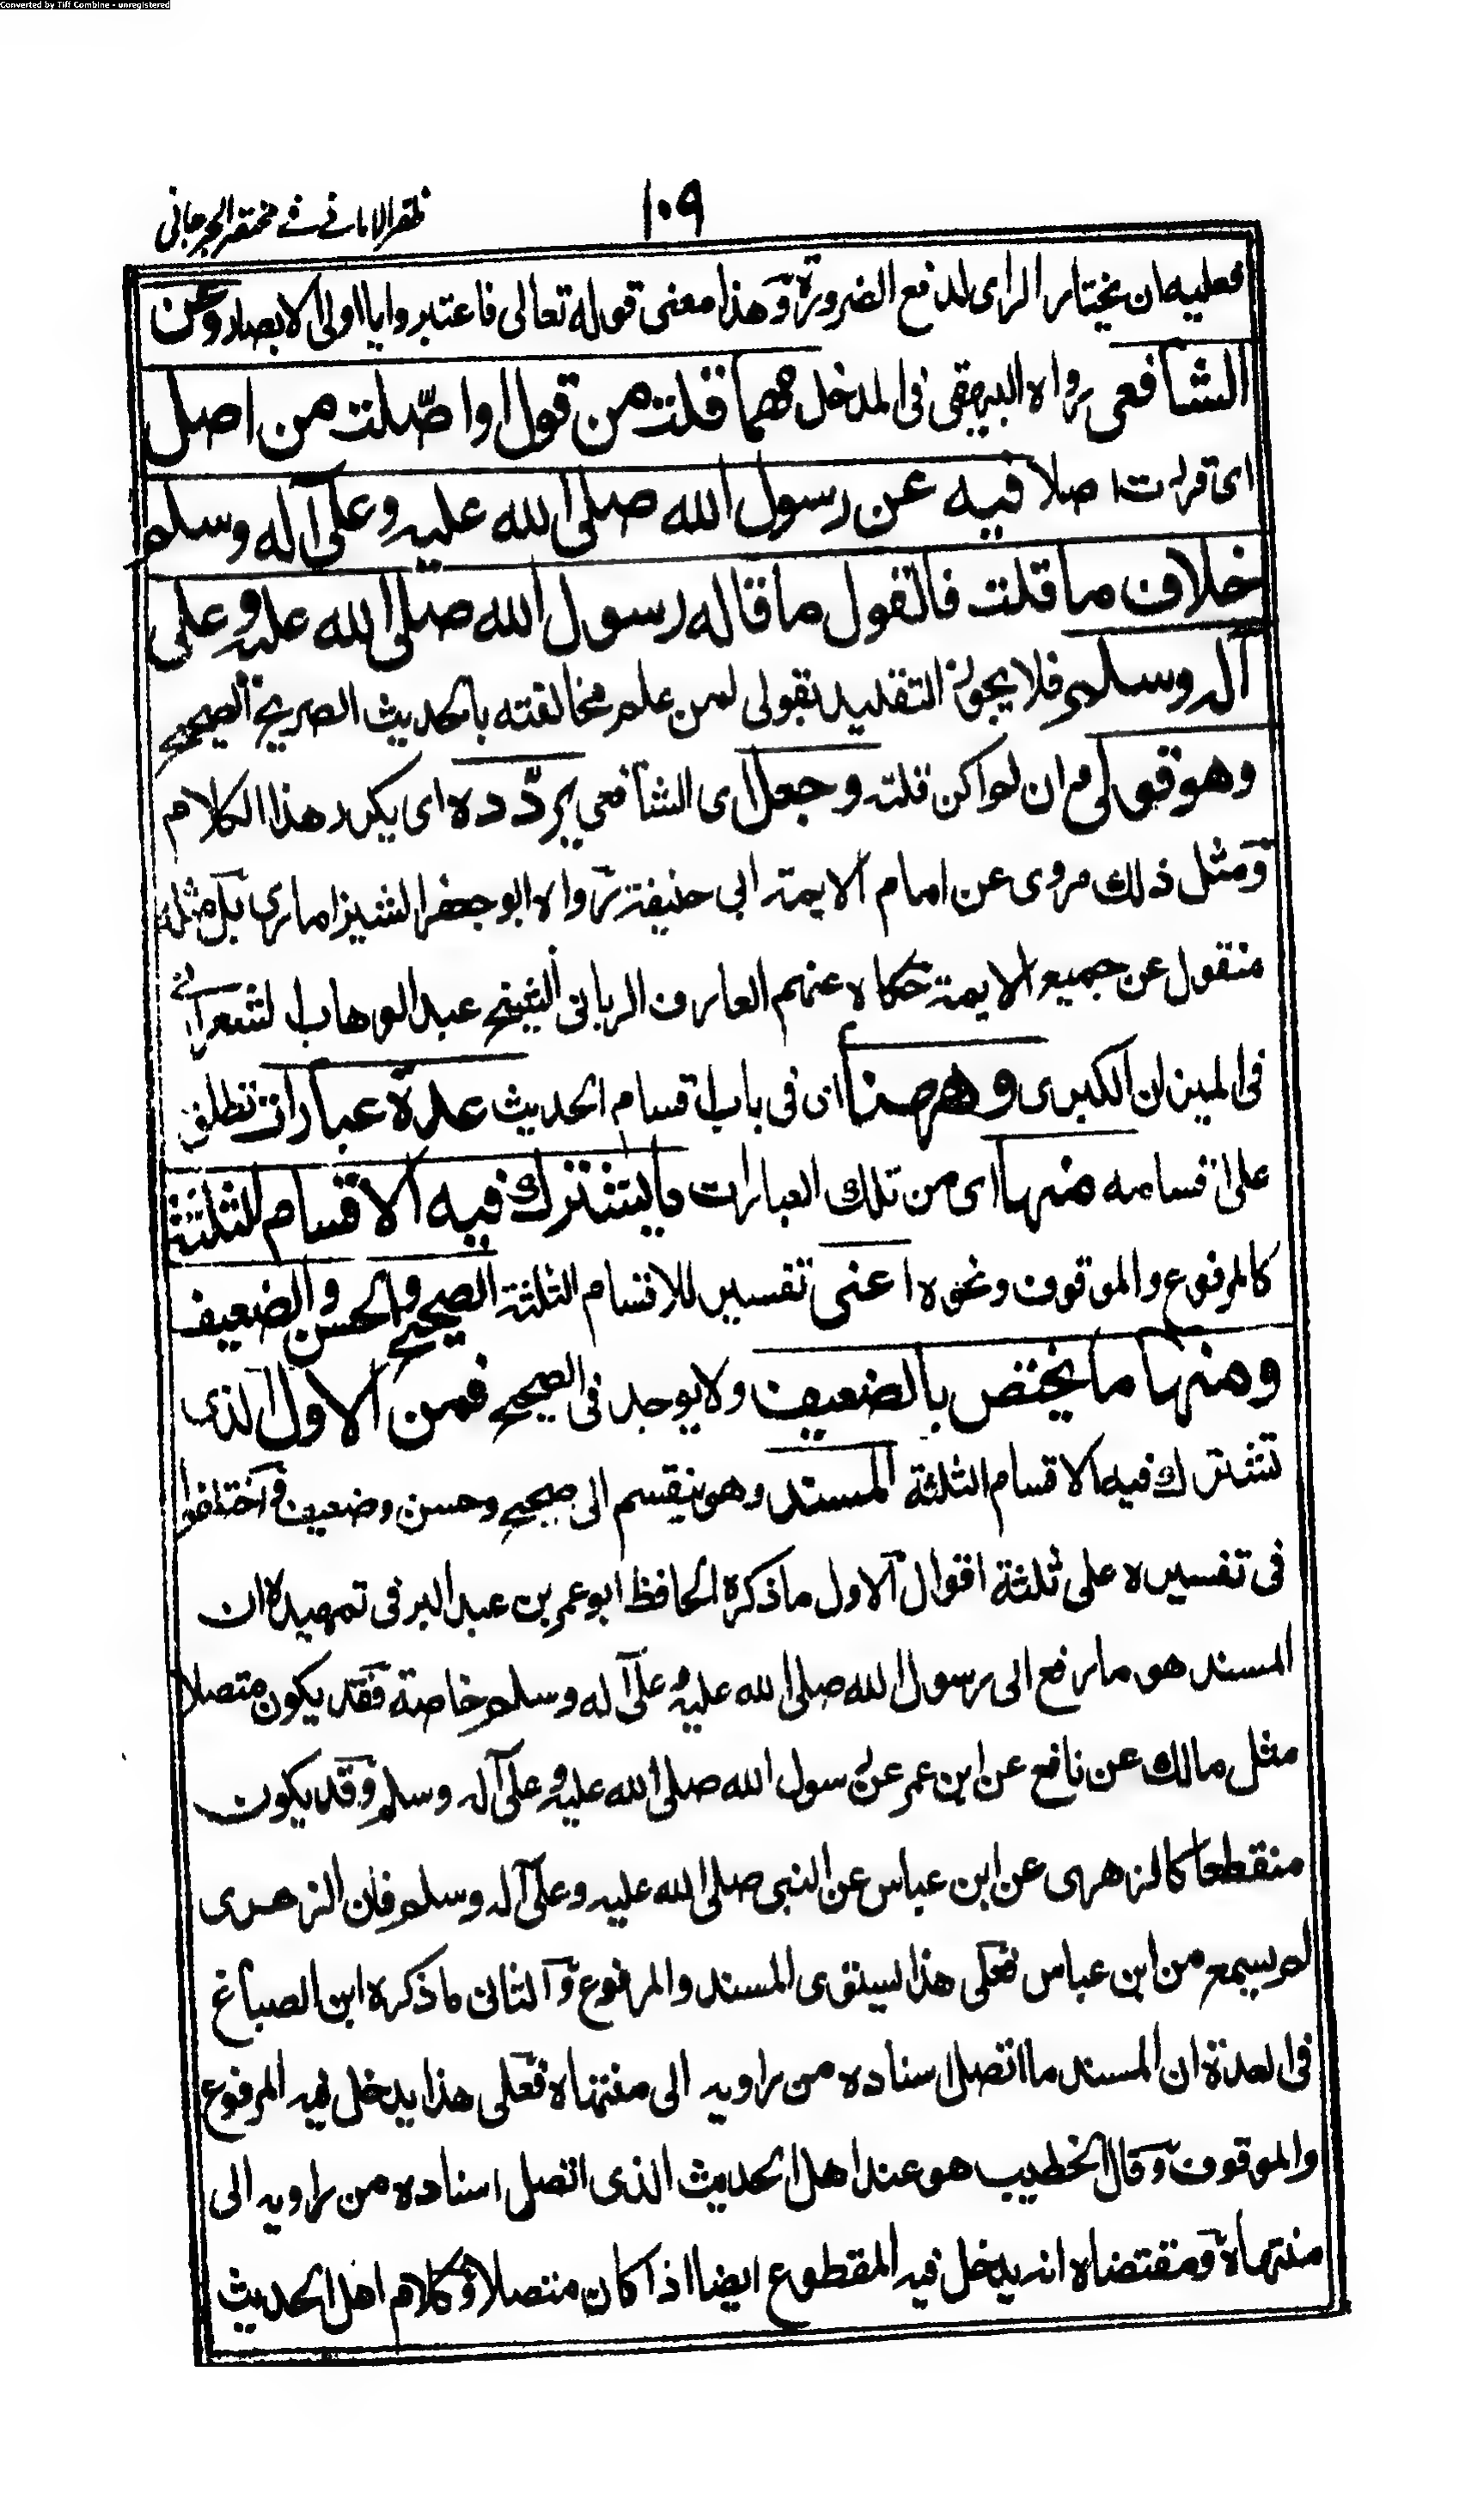 Converted by Tiff Combine - unregistered
ظفر الامانی فی مختصر الجرجانی
١٠٩
فعليه ان يختار الرأى لدفع الضرورة وهذا معنى قوله تعالى فاعتبروا يا اولى الابصار وعن
الشافعى رواه البيهقى فى المدخل مهما قلت من قول او اصّلت من اصل
اى قررت اصلا فيه عن رسول الله صلى الله عليه وعلى آله وسلم
خلاف ما قلت فالقول ما قاله رسول الله صلى الله عليه وعلى
آله وسلم فلا يجوز التقليد بقولى لمن علم مخالفته بالحديث الصريح الصحيح
وهو قولى وان لم اكن قلته وجعل اى الشافعي يردّده اى يكرر هذا الكلام
ومثل ذلك مروى عن امام الايمة ابي حنيفة رواه ابو جعفر الشيزامارى بل مثله
منقول عن جميع الايمة حكاه عنهم العارف الربانى الشيخ عبد الوهاب الشعرانى
فى الميزان الكبرى وههنا اى فى باب اقسام الحديث عدة عبارات تطلق
على اقسامه منها اى من تلك العبارات ما يشترك فيه الاقسام الثلثة
كالمرفوع والموقوف ونحوه اعنى تفسير للاقسام الثلثة الصحيح والحسن والضعيف
ومنها ما يختص بالضعيف ولا يوجد فى الصحيح فمن الاول الذى
تشترك فيه الاقسام الثلثة المسند وهو ينقسم الى صحيح وحسن وضعيف واختلفوا
فى تفسيره على ثلثة اقوال الاول ما ذكره الحافظ ابو عمر بن عبد البر فى تمهيده ان
المسند هو ما رفع الى رسول الله صلى الله عليه وعلى آله وسلم خاصة فقد يكون متصلا
مثل مالك عن نافع عن ابن عمر عن رسول الله صلى الله عليه وعلى آله وسلم وقد يكون
منقطعا كالزهرى عن ابن عباس عن النبى صلى الله عليه وعلى آله وسلم فان الزهرى
لم يسمع من ابن عباس فعلى هذا يستوى المسند والمرفوع والثانى ما ذكره ابن الصباغ
فى العدة ان المسند ما اتصل اسناده من راويه الى منتهاه فعلى هذا يدخل فيه المرفوع
والموقوف وقال الخطيب هو عند اهل الحديث الذى اتصل اسناده من راويه الى
منتهاه ومقتضاه انه يدخل فيه المقطوع ايضا اذا كان متصلا وكلام اهل الحديث